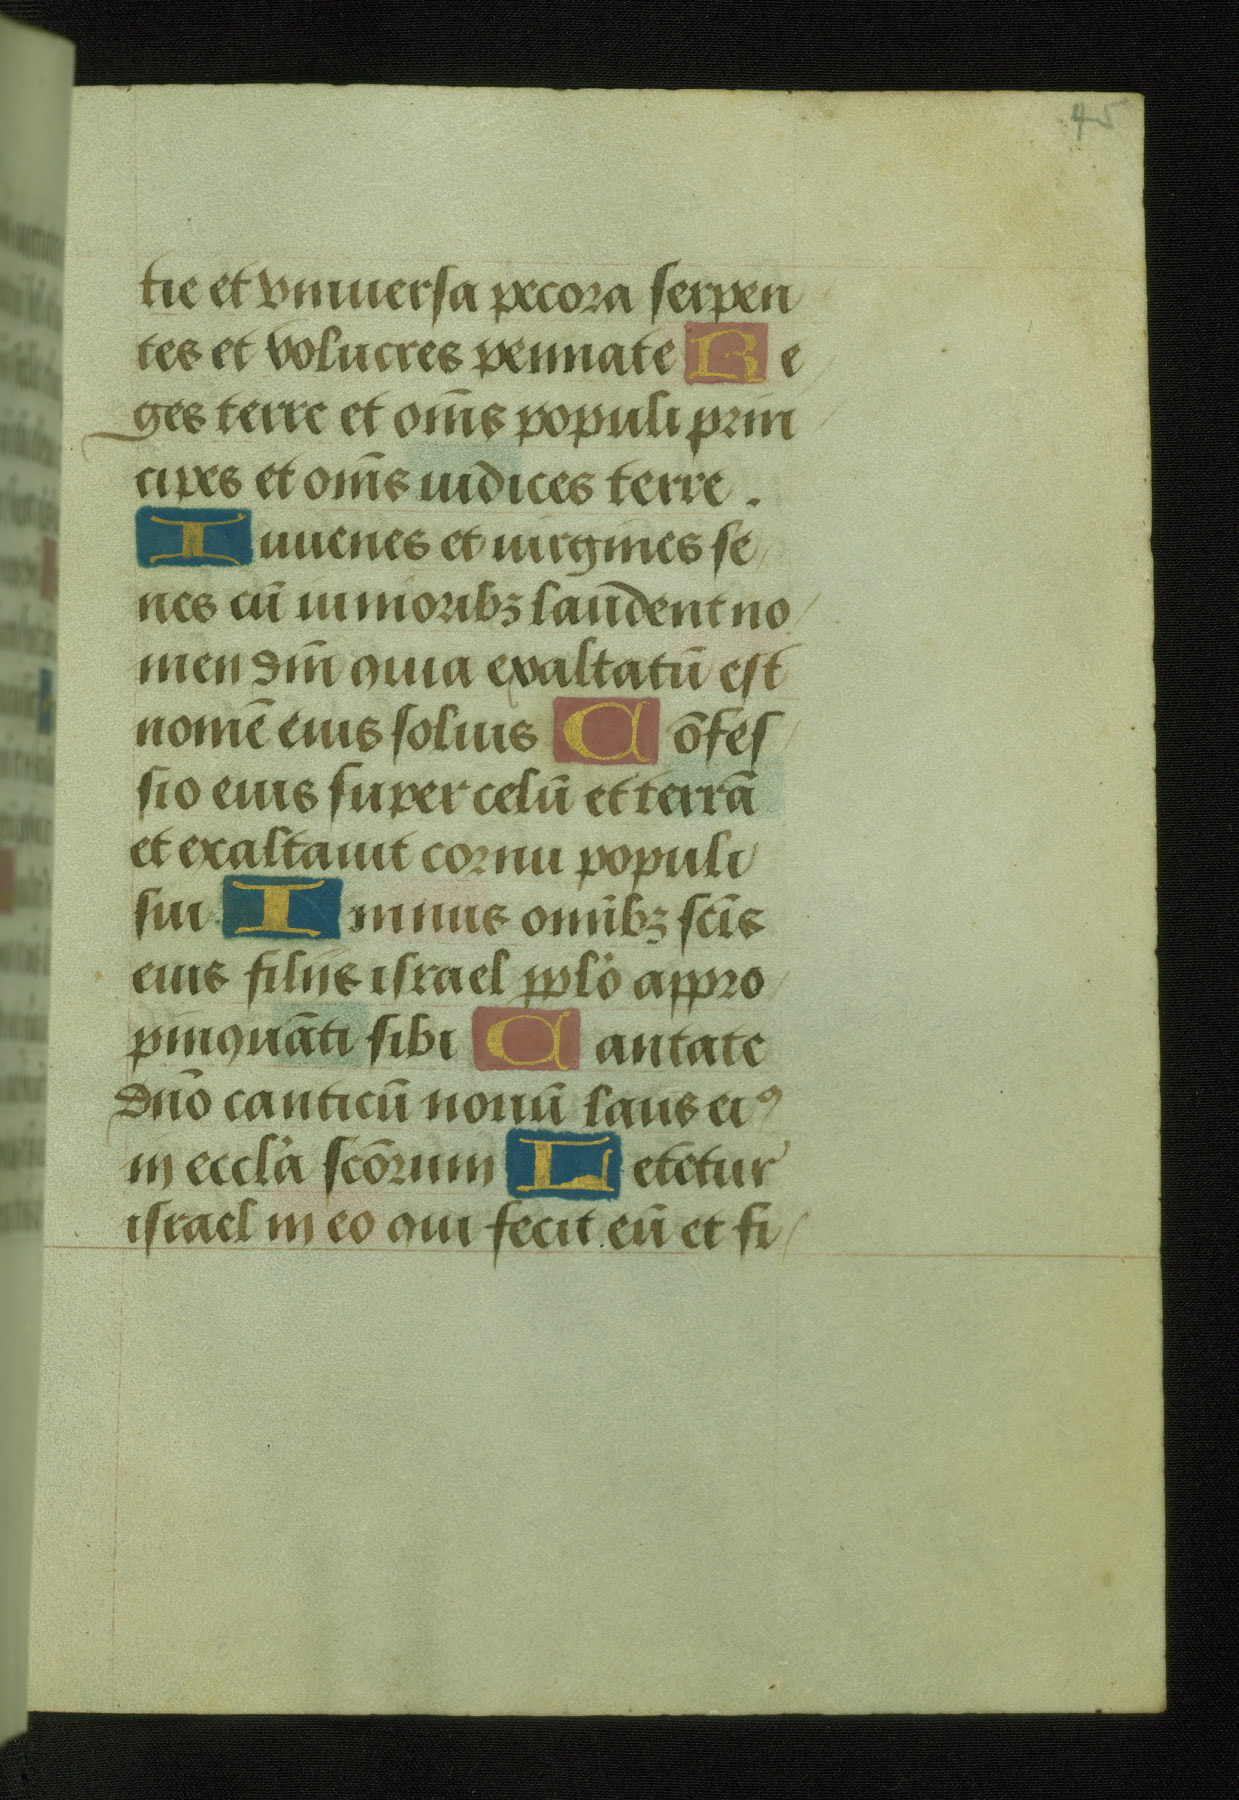 45
tie et vniuersa pecora serpen
tes et volucres pennate Re
ges terre et om̄s populi prin
cipes et om̄s iudices terre .
Iuuenes et uirgines se
nes cū iunioribꝫ laudent no
men dn̄i quia exaltatū est
nomē eius solius Cōfes
sio eius super celū et terrā
et exaltauit cornu populi
sui Imnus omībꝫ sc̄is
eius filijs israel pplo appro
pinquāti sibi Cantate
dn̄o canticū nouū laus eiꝰ
in eccl̄a sc̄orum Letetur
israel in eo qui fecit eū et fi